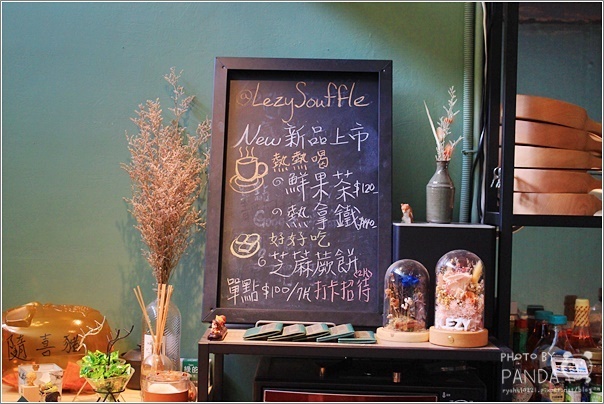 @LezySouffle
New 新品上市
熱熱喝
鮮果茶$120
熱拿鐵$140
好好吃
芝蔴蕨餅
單點$100/7片 打卡招待
隨喜豬
PHOTO BY
PANDA